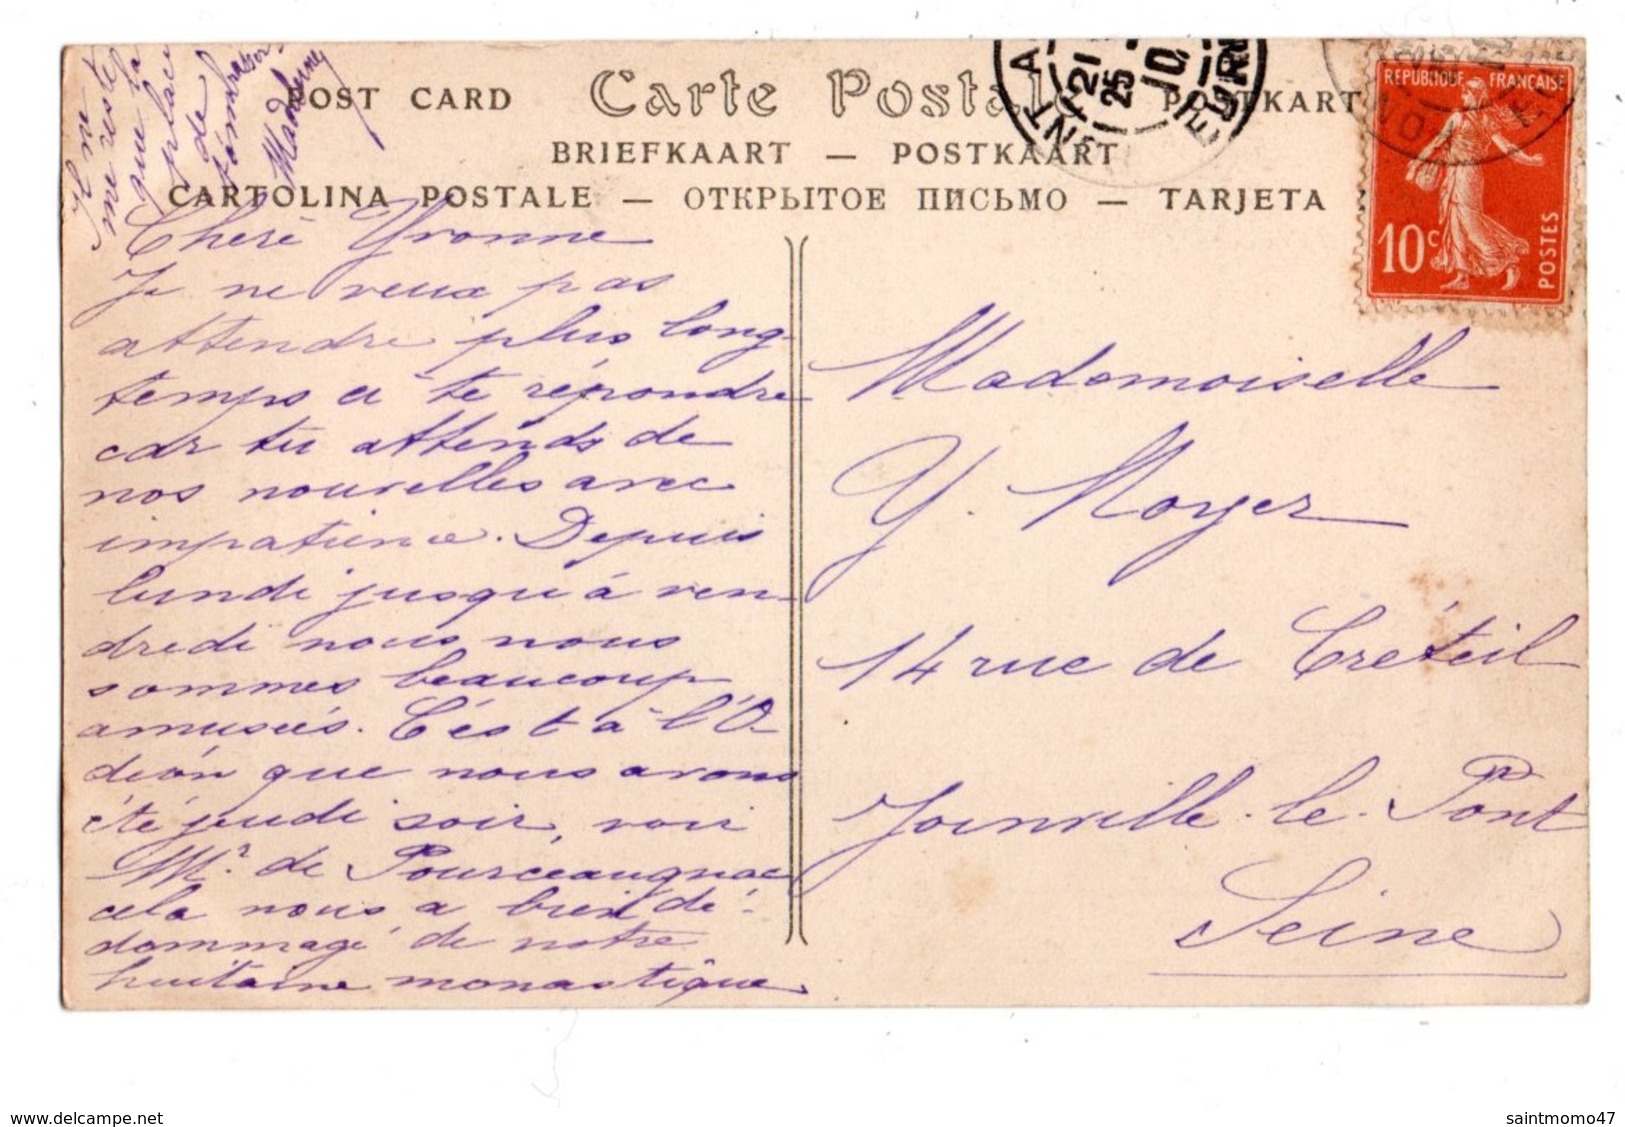 POST CARD Carte Postale POSTKART
BRIEFKAART — POSTKAART
CARTOLINA POSTALE — ОТКРЫТОЕ ПИСЬМО — TARJETA
Il ne
me reste
que la
place
de
t'embrasser
Madeleine
Cherè Yvonne
Je ne veux pas
attendre plus long-
temps à te répondre
car tu attends de
nos nouvelles avec
impatience. Depuis
lundi jusqu'à ven-
dredi nous nous
sommes beaucoup
amusés. C'est à l'O-
déon que nous avons
été jeudi soir, voir
Mr. de Pourceaugnac
cela nous a bien dé-
dommagé de notre
huitaine monastique.
21
25
10
EURE
RÉPUBLIQUE FRANÇAISE
10c
POSTES
Mademoiselle
Y. Noyer
14 rue de Créteil
Joinville-le-Pont
Seine
www.delcampe.net
saintmomo47